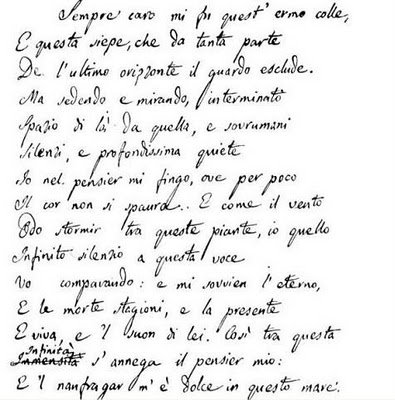 Sempre caro mi fu quest' ermo colle,
E questa siepe, che da tanta parte
De l'ultimo orizzonte il guardo esclude.
Ma sedendo e mirando, interminato
Spazio di là da quella, e sovrumani
Silenzi, e profondissima quiete
Io nel pensier mi fingo, ove per poco
Il cor non si spaura.. E come il vento
Odo stormir tra queste piante, io quello
Infinito silenzio a questa voce
Vo comparando: e mi sovvien l'eterno,
E le morte stagioni, e la presente
E viva, e 'l suon di lei. Così tra questa
Infinità
Immensità s'annega il pensier mio:
E 'l naufragar m'è dolce in questo mare.